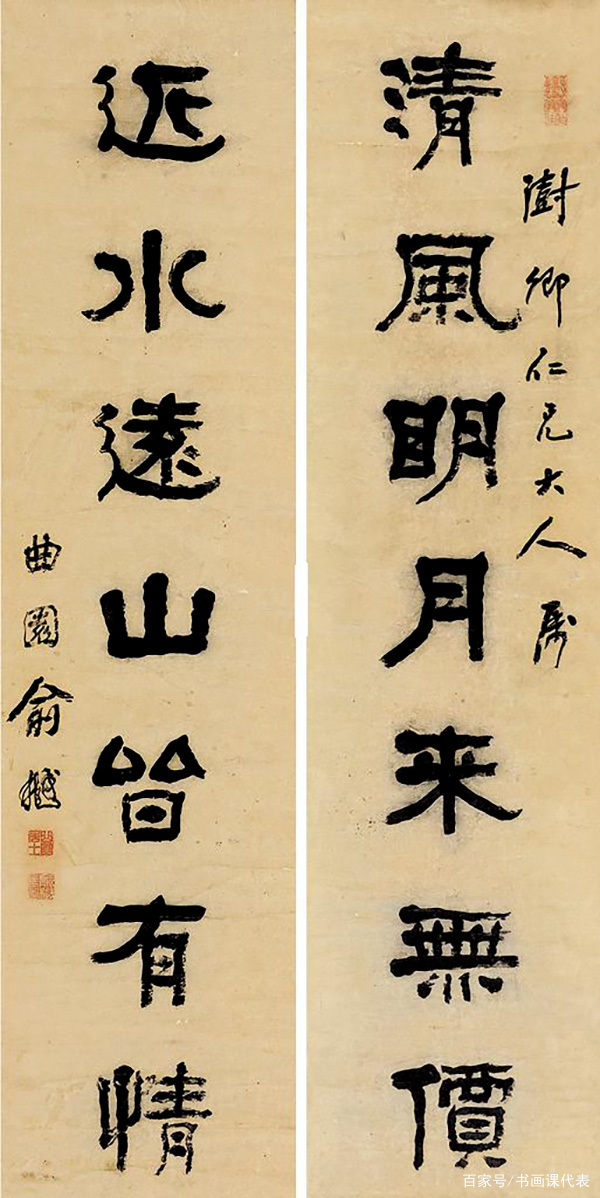 澍卿仁兄大人属
清風眀月来無價
近水遠山皆有情
曲園俞樾
百家号/书画课代表